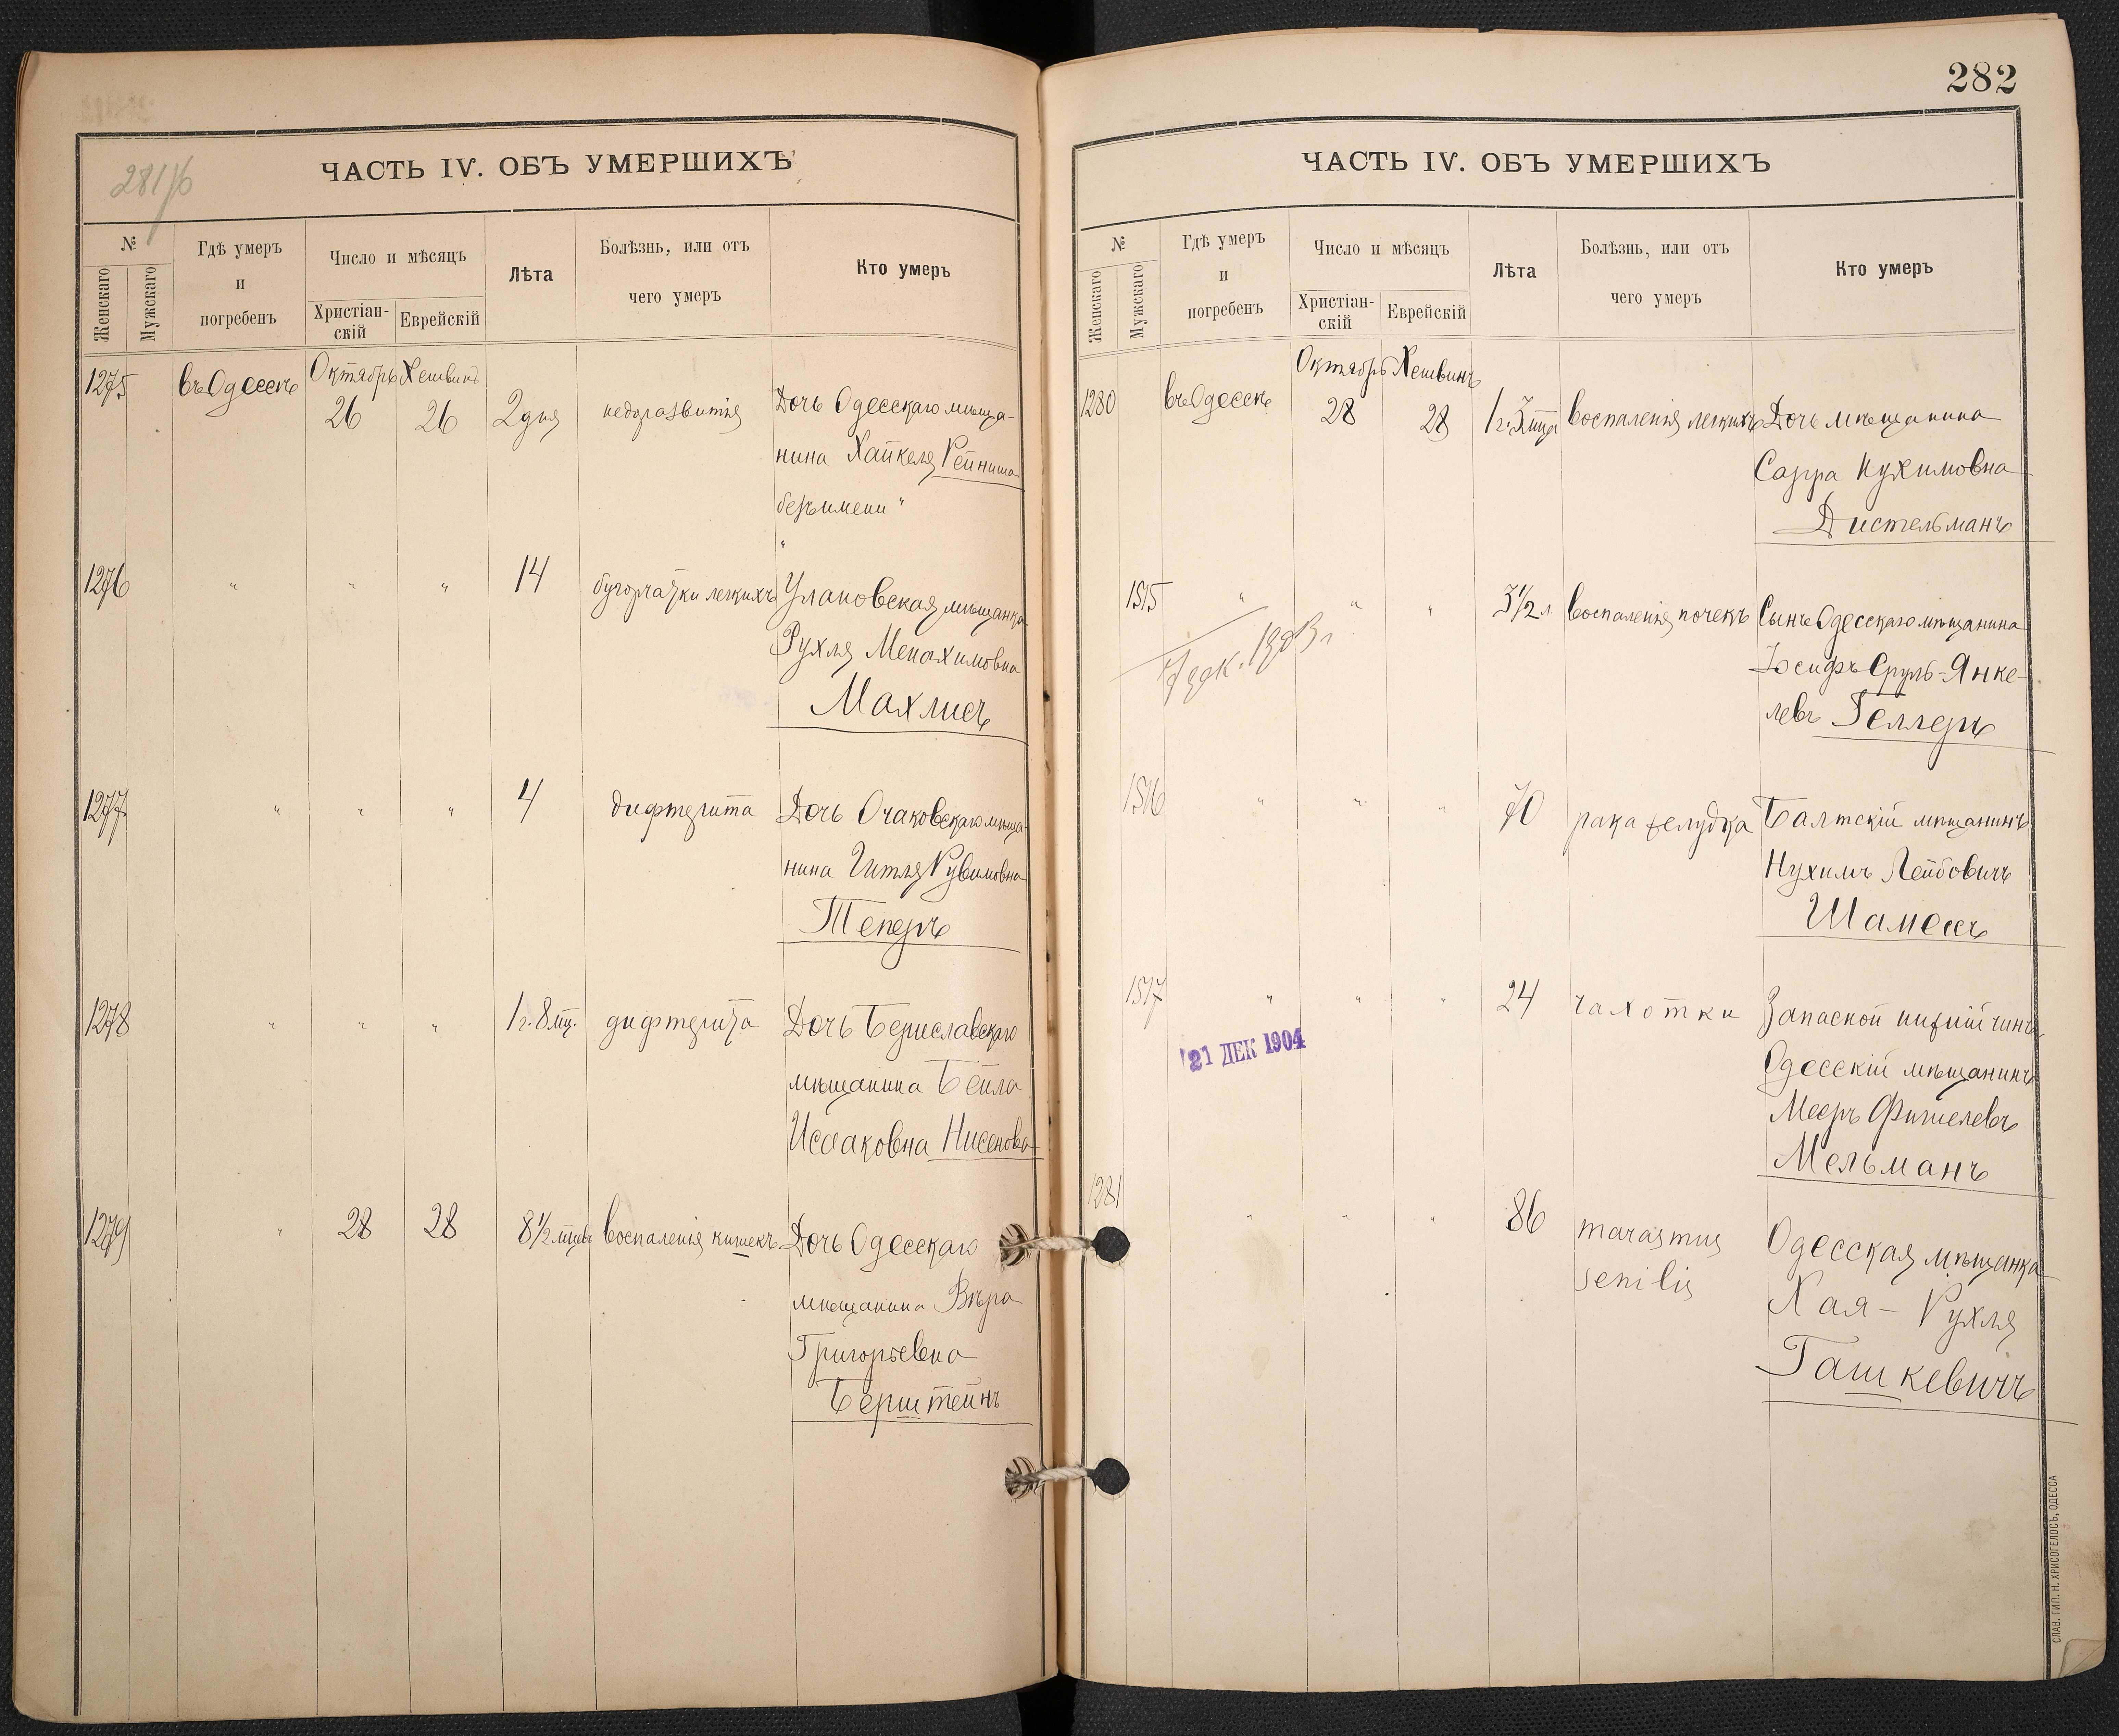 281/б
ЧАСТЬ IV. ОБЪ УМЕРШИХЪ
№
Женскаго
Мужскаго
Гдѣ умеръ
и
погребенъ
Число и мѣсяцъ
Христіан-
скій
Еврейскій
Лѣта
Болѣзнь, или отъ
чего умеръ
Кто умеръ
1275 въ Одессѣ Октябрь Хешвинъ
26 26 2 дня недоразвитія Дочь Одесскаго мѣща-
нина Хайкеля Рейниша
безъ имени "
"
1276 " " " 14 бугорчатки легкихъ Улановская мѣщанка
Рухля Менахимовна
Махлисъ
1277 " " " 4 дифтерита Дочь Очаковскаго мѣща-
нина Гитля Рувимовна
Теперъ
1278 " " " 1 г. 8 мц. дифтерита Дочь Бериславскаго
мѣщанина Бейла
Исааковна Нисенова
1279 " 28 28 8 1/2 мцевъ воспаленія кишекъ Дочь Одесскаго
мѣщанина Вѣра
Григорьевна
Берштейнъ
282
ЧАСТЬ IV. ОБЪ УМЕРШИХЪ
№
Женскаго
Мужскаго
Гдѣ умеръ
и
погребенъ
Число и мѣсяцъ
Христіан-
скій
Еврейскій
Лѣта
Болѣзнь, или отъ
чего умеръ
Кто умеръ
1280 въ Одессѣ Октябрь Хешвинъ
28 28 1 г. 3 мца воспаленія легкихъ Дочь мѣщанина
Сарра Нухимовна
Дистельманъ
1515 " " " 3 1/2 л воспаленія почекъ Сынъ Одесскаго мѣщанина
Іосифъ Сруль-Янке-
левъ Геллеръ
1903 г
1516 " " " 70 рака желудка Балтскій мѣщанинъ
Нухимъ Лейбовичъ
Шамесъ
1517 " " " 24 чахотки Запасной нижній чинъ
21 ДЕК 1904
Одесскій мѣщанинъ
Мееръ Фишелевъ
Мельманъ
1281 " " " 86 marasmus
senilis
Одесская мѣщанка
Хая - Рухля
Гашкевичъ
СЛАВ. ТИП. Н. ХРИСОГЕЛОСЪ, ОДЕССА